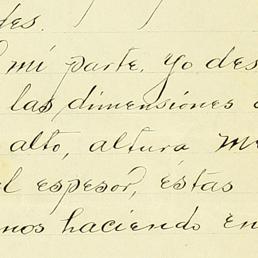 des.
mi parte. Yo des
las dimensiones
alto, altura me
el espesór, éstas
nos haciendo en